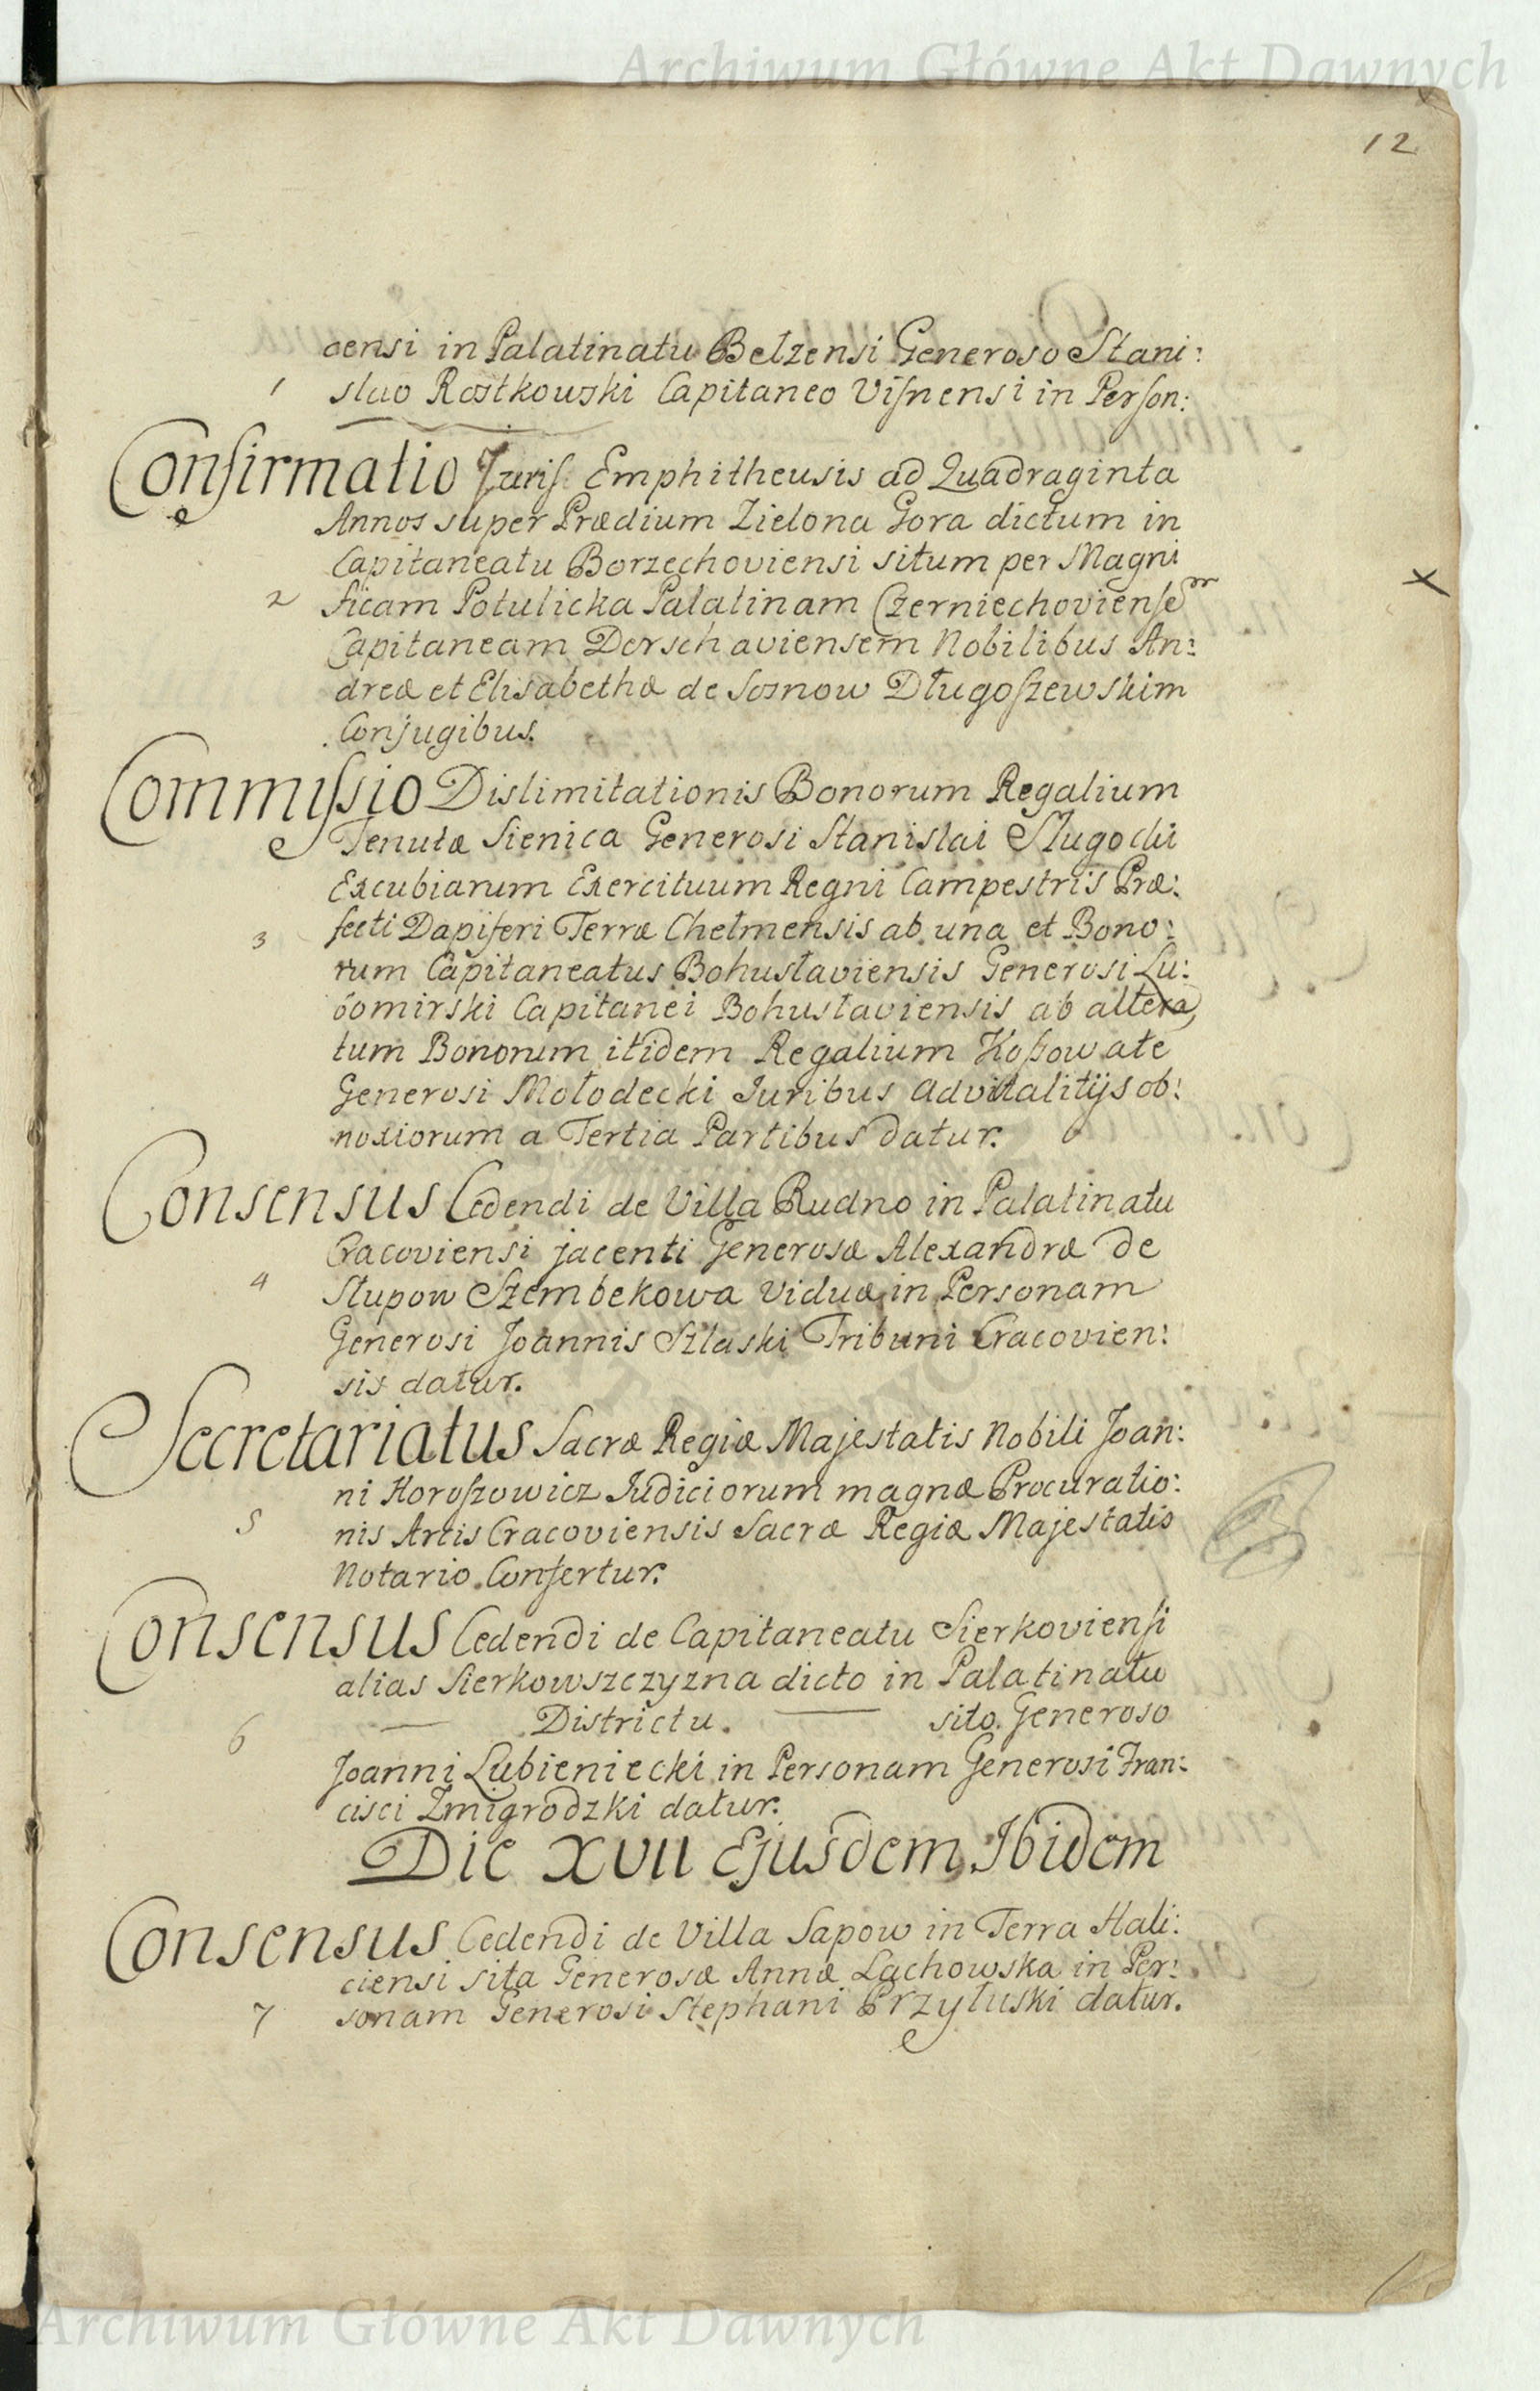 Archiwum Główne Akt Dawnych
12
censi in Palatinatu Bełzensi Generoso Stani:
1 slao Rostkowski Capitaneo Visnensi in Person:
Confirmatio Juris Emphitheusis ad Quadraginta
Annos super Prædium Zielona Gora dictum in
Capitaneatu Borzechoviensi situm per Magni
2 ficam Potulicka Palatinam Czerniechoviensem
Capitaneam Derschaviensem Nobilibus An:
dreæ et Elisabethæ de Sosnow Długoszewskim
Conjugibus.
Commissio Dislimitationis Bonorum Regalium
Tenutæ Sienica Generosi Stanislai Sługocki
Excubiarum Exercituum Regni Campestris Præ:
3 fecti Dapiferi Terræ Chełmensis ab una et Bono:
rum Capitaneatus Bohusłaviensis Generosi Lu:
bomirski Capitanei Bohusłaviensis ab altera,
tum Bonorum itidem Regalium Koszowate
Generosi Mołodecki Juribus Advitalitijs ob:
noxiorum a Tertia Partibus datur.
Consensus Cedendi de Villa Rudno in Palatinatu
Cracoviensi jacenti Generosæ Alexandræ de
4 Słupow Szembekowa Viduæ in Personam
Generosi Joannis Szlaski Tribuni Cracovien:
sis datur.
Secretariatus Sacræ Regiæ Majestatis Nobili Joan:
ni Horoszowicz Judiciorum magnæ Procuratio:
5 nis Arcis Cracoviensis Sacræ Regiæ Majestatis
Notario Confertur.
Consensus Cedendi de Capitaneatu Sierkoviensi
alias Sierkowszczyzna dicto in Palatinatu
6 — Districtu. — sito. Generoso
Joanni Lubieniecki in Personam Generosi Fran:
cisci Zmigrodzki datur.
Die XVII Ejusdem Ibidem
Consensus Cedendi de Villa Sapow in Terra Hali:
ciensi sita Generosæ Annæ Lachowska in Per:
7 sonam Generosi Stephani Przyłuski datur.
Archiwum Główne Akt Dawnych